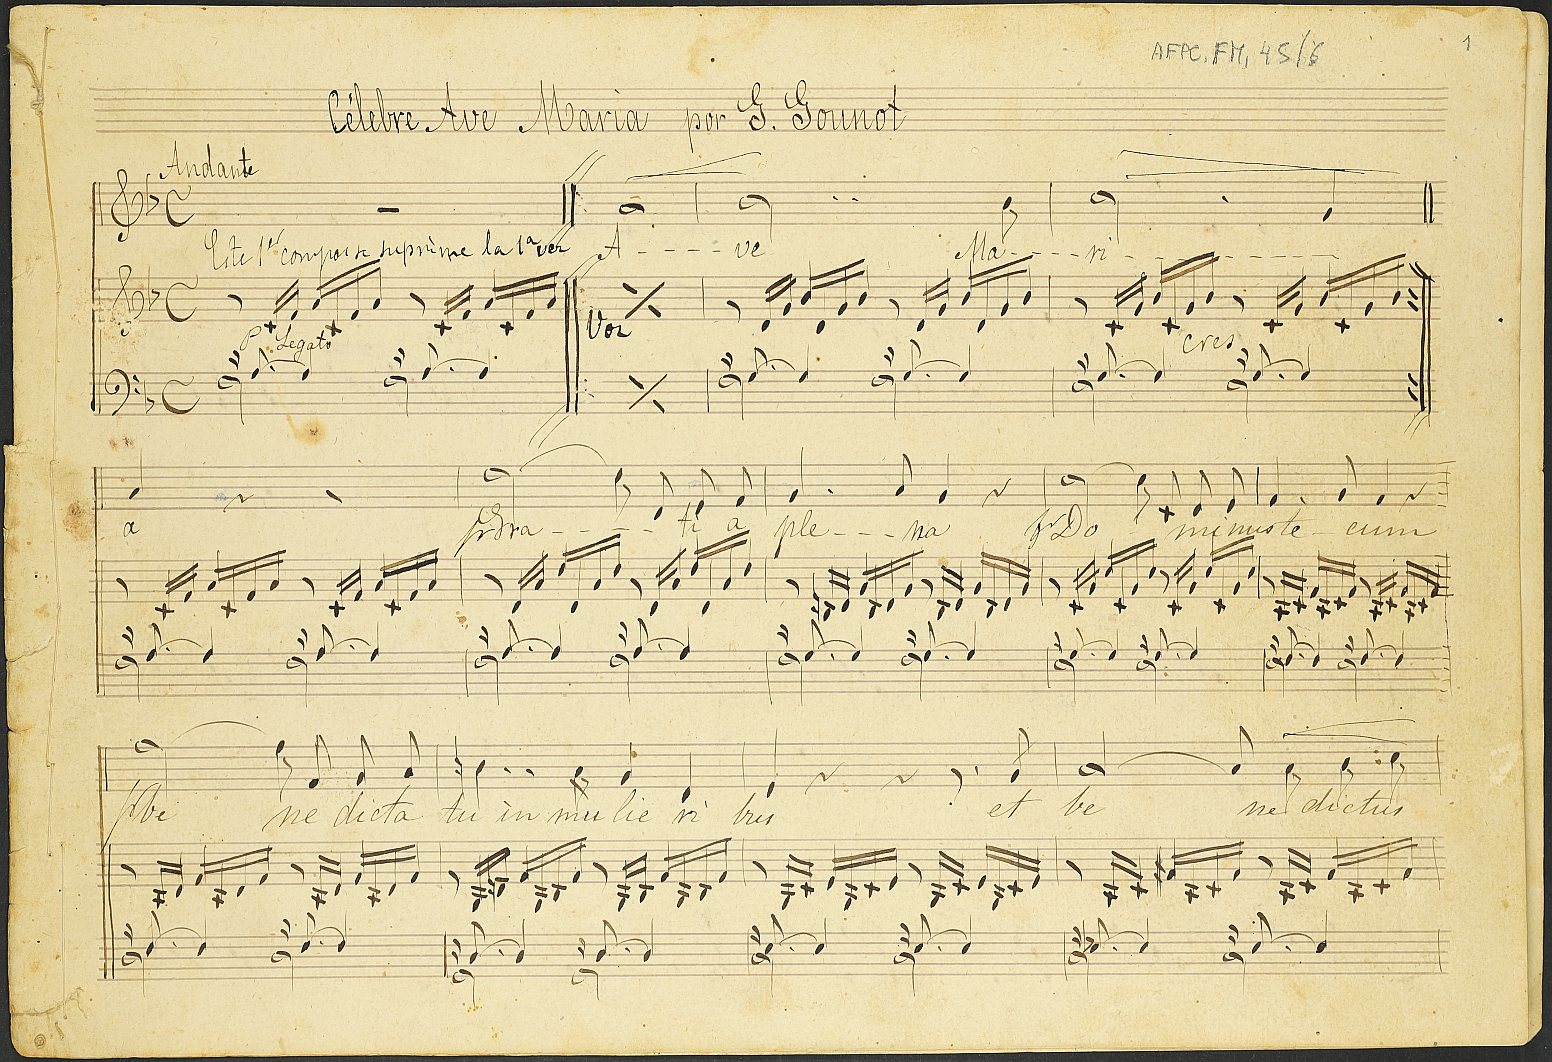 AFPC, FM, 45/6
1
Célebre Ave Maria por G. Gounot
Andante
Este 1er compas se suprime la 1a vez
A - - - - ve Ma - - - - ri - - - - - - - - -
P Legato
Voz
cres
a Gra - - - - - ti a ple - - - na Do - minuste - cum
Be ne dicta tu in mu lie ri bus et be ne dictus